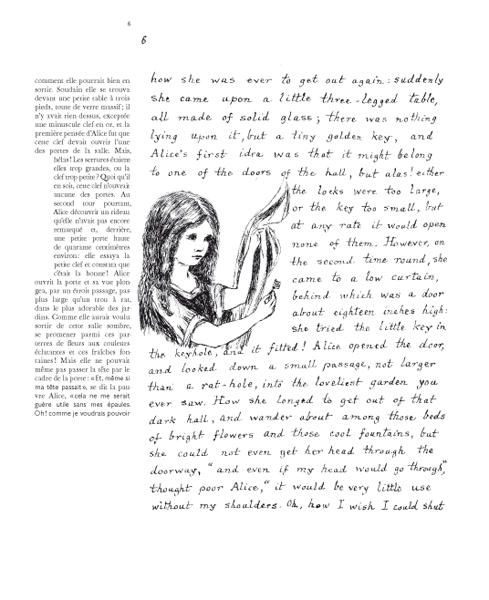 6
6
comment elle pourrait bien en
sortir. Soudain elle se trouva
devant une petite table à trois
pieds, toute de verre massif ; il
n'y avait rien dessus, exceptée
une minuscule clef en or, et la
première pensée d'Alice fut que
cette clef devait ouvrir l'une
des portes de la salle. Mais,
hélas! Les serrures étaient
elles trop grandes, ou la
clef trop petite? Quoi qu'il
en soit, cette clef n'ouvrait
aucune des portes. Au
second tour pourtant,
Alice découvrit un rideau
qu'elle n'avait pas encore
remarqué et, derrière,
une petite porte haute
de quarante centimètres
environ: elle essaya la
petite clef et constata que
c'était la bonne! Alice
ouvrit la porte et sa vue plon-
gea, par un étroit passage, pas
plus large qu'un trou à rat,
dans le plus adorable des jar-
dins. Comme elle aurait voulu
sortir de cette salle sombre,
se promener parmi ces par-
terres de fleurs aux couleurs
éclatantes et ces fraîches fon-
taines! Mais elle ne pouvait
même pas passer la tête par le
cadre de la porte : «Et, même si
ma tête passait», se dit la pau-
vre Alice, «cela ne me serait
guère utile sans mes épaules.
Oh! comme je voudrais pouvoir
how she was ever to get out again: suddenly
she came upon a little three-legged table,
all made of solid glass; there was nothing
lying upon it, but a tiny golden key, and
Alice's first idea was that it might belong
to one of the doors of the hall, but alas! either
the locks were too large,
or the key too small, but
at any rate it would open
none of them. However, on
the second time round, she
came to a low curtain,
behind which was a door
about eighteen inches high:
she tried the little key in
the keyhole, and it fitted! Alice opened the door,
and looked down a small passage, not larger
than a rat-hole, into the loveliest garden you
ever saw. How she longed to get out of that
dark hall, and wander about among those beds
of bright flowers and those cool fountains, but
she could not even get her head through the
doorway, "and even if my head would go through,"
thought poor Alice, "it would be very little use
without my shoulders. Oh, how I wish I could shut